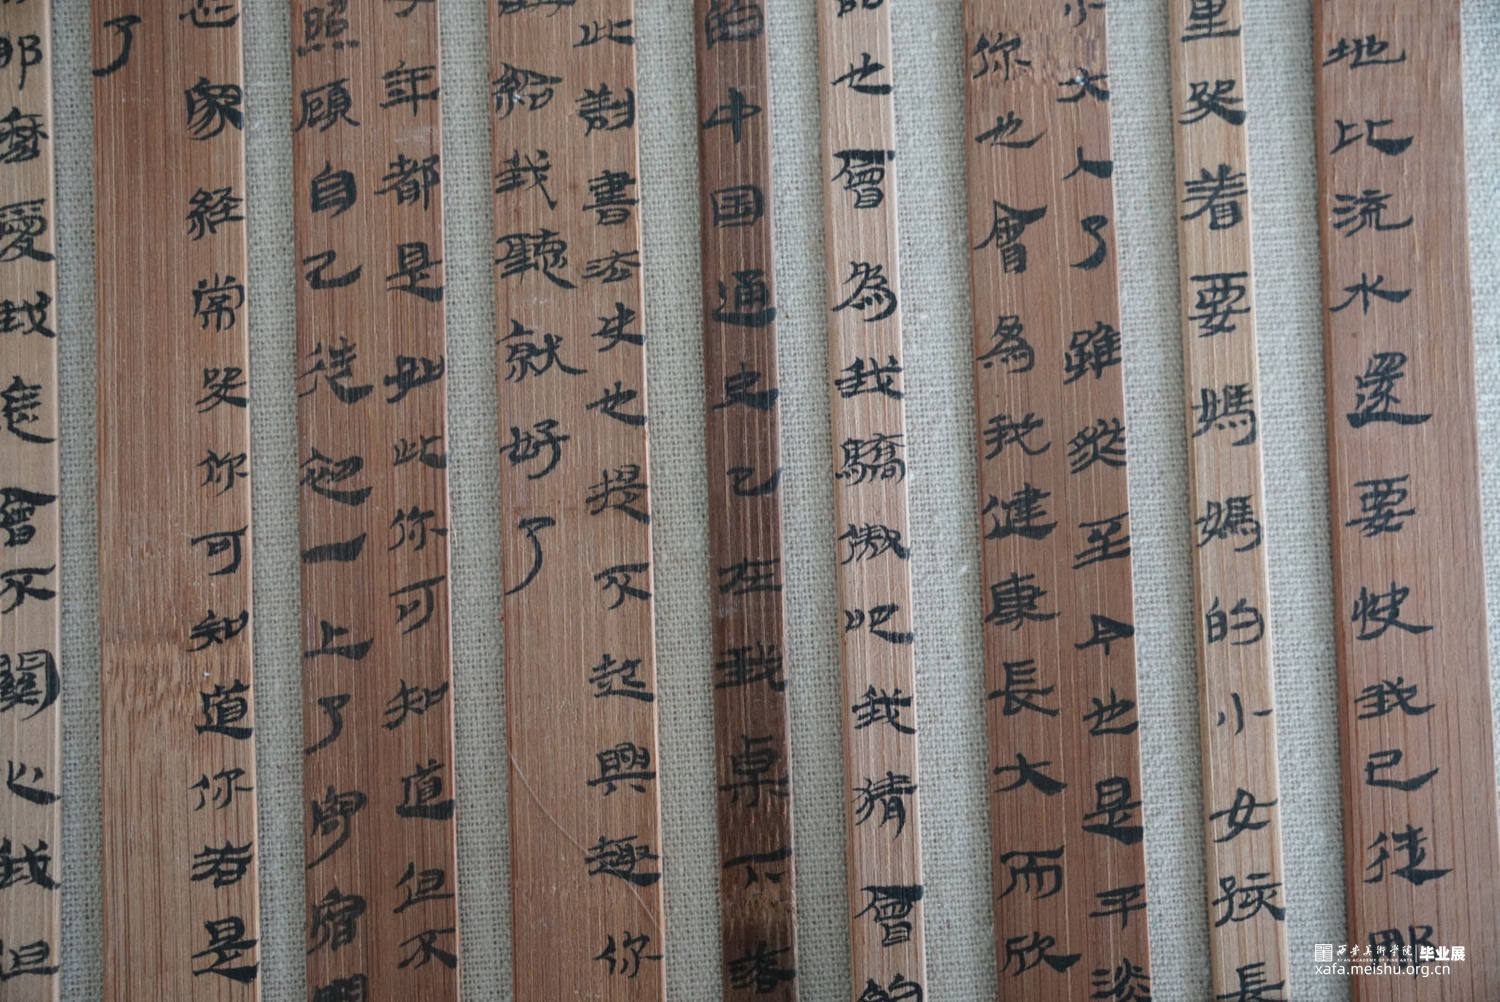 地比流水還要快我已從那
里哭着要媽媽的小女孩長
小大人了雖然至今也是平淡
你也會為我健康長大而欣
的也會為我驕傲吧我猜會的
的中国通史已在我桌下
此刻書法史也提不起興趣你
給我聽就好了
年都是如此你可知道但不
照顧自己從一上了宿
也家经常哭你可知道你若是
了
那麼愛我是會不關心我但
西安美術学院 毕业展
XI'AN ACADEMY OF FINE ARTS
xafa.meishu.org.cn